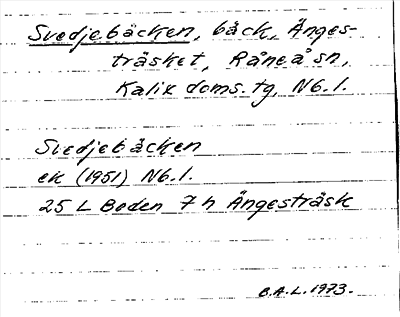 Svedjebäcken, bäck, Änges-
träsket, Råneå sn,
Kalix doms. tg, Nb. l.
Svedjebäcken
ek (1951) Nb. l.
25 L Boden 7 h Ängesträsk
B.A.L. 1973.